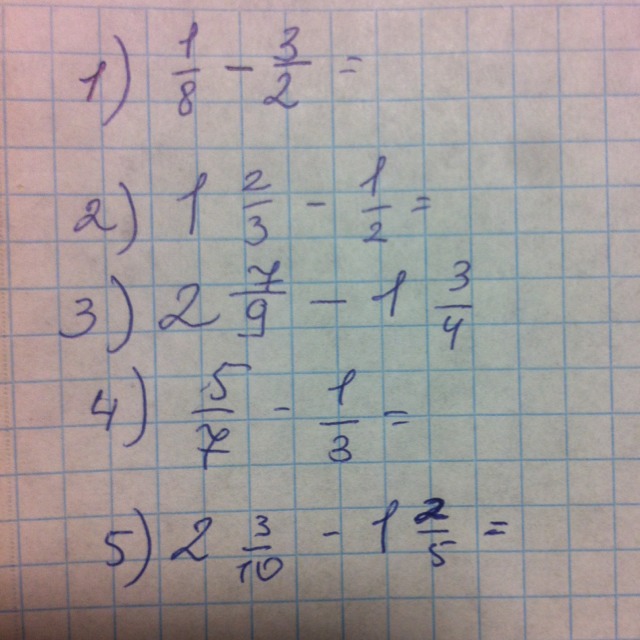 1) 1/8 - 3/2 =
2) 1 2/3 - 1/2 =
3) 2 7/9 - 1 3/4
4) 5/7 - 1/3 =
5) 2 3/10 - 1 2/5 =